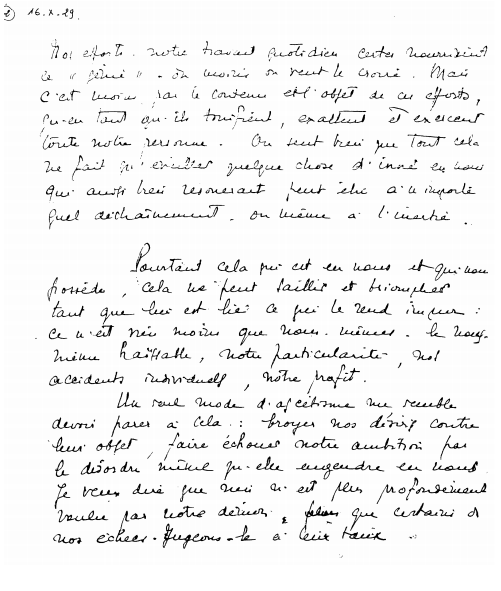 2 16.X.29.
Nos efforts, notre travail quotidien certes nourrissent
ce "génie" - du moins on veut le croire. Mais
c'est moins par le contenu et l'objet de ces efforts,
qu'en tant qu'ils tonifient, exaltent et exercent
toute notre personne. On sent bien que tout cela
ne fait qu'exciter quelque chose d'inné en nous
qui aussi bien resonerait peut être à n'importe
quel déchaînement - ou même à l'inertie.
Pourtant cela qui est en nous et qui nous
possède, cela ne peut saillir et triompher
tant que lui est lié ce qui le rend impur :
ce n'est rien moins que nous-mêmes - le nous-
même haïssable, notre particularité, nos
accidents individuels, notre profit.
Un seul mode d'ascétisme me semble
devoir parer à cela : broyer nos désirs contre
leur objet, faire échouer notre ambition par
le désordre même qu'elle engendre en nous.
Je veux dire que rien n'est plus profondément
voulu par notre démon, que certains de
nos échecs. Jugeons-le à leur taux.